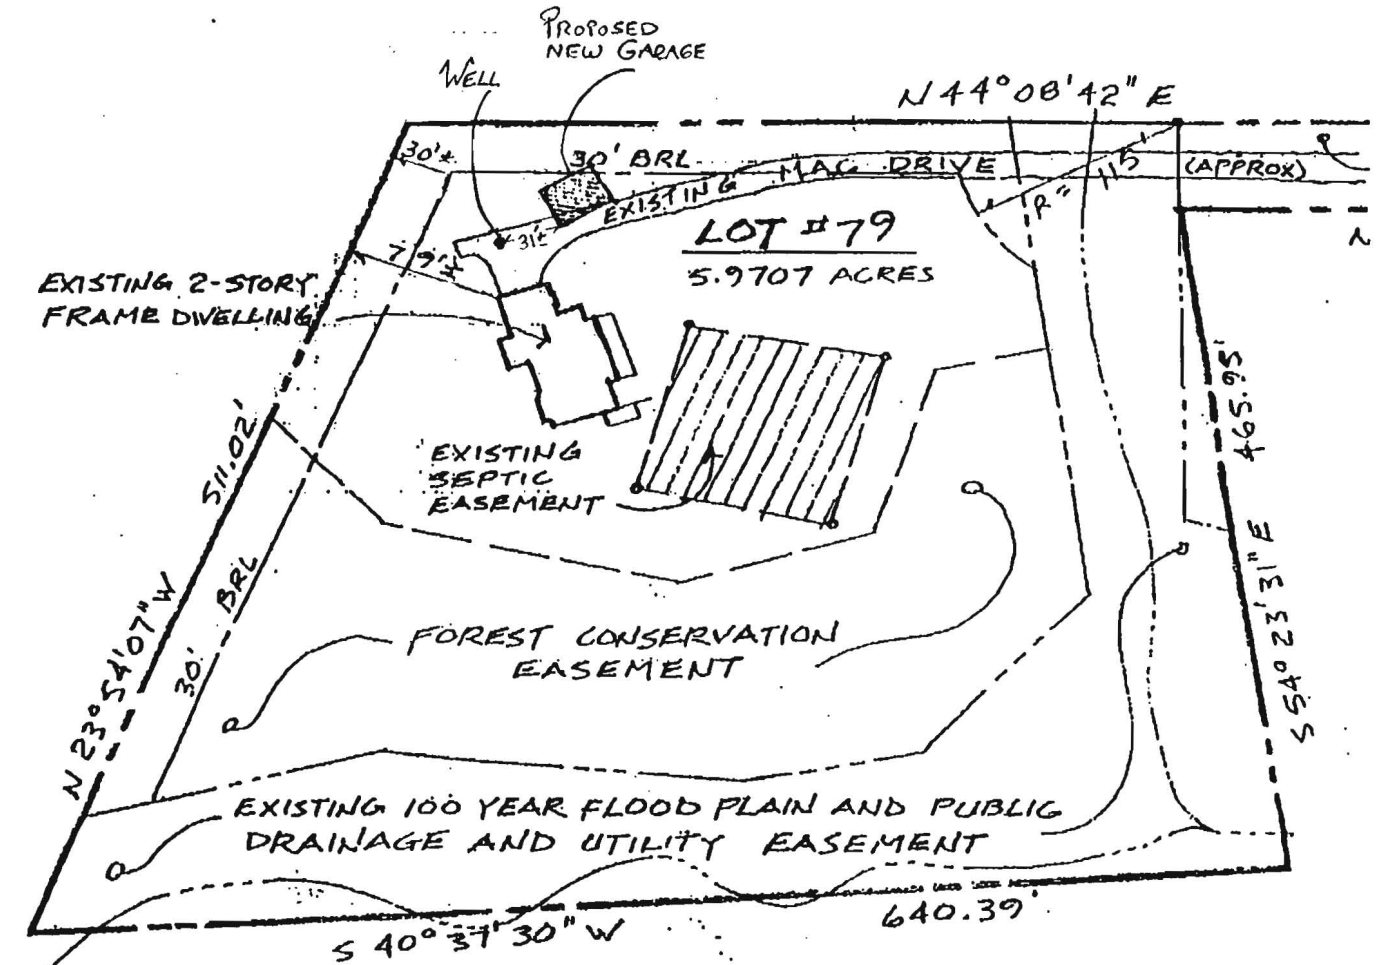 PROPOSED
NEW GARAGE
WELL
N 44° 08' 42" E
30'±
30' BRL
EXISTING MAC. DRIVE (APPROX)
R= 115
31'±
LOT #79
5.9707 ACRES
79'±
EXISTING 2-STORY
FRAME DWELLING
511.02'
465.95'
EXISTING
SEPTIC
EASEMENT
30' BRL
N 23° 54' 07" W
S 54° 23' 31" E
FOREST CONSERVATION
EASEMENT
EXISTING 100 YEAR FLOOD PLAIN AND PUBLIC
DRAINAGE AND UTILITY EASEMENT
640.39'
S 40° 37' 30" W